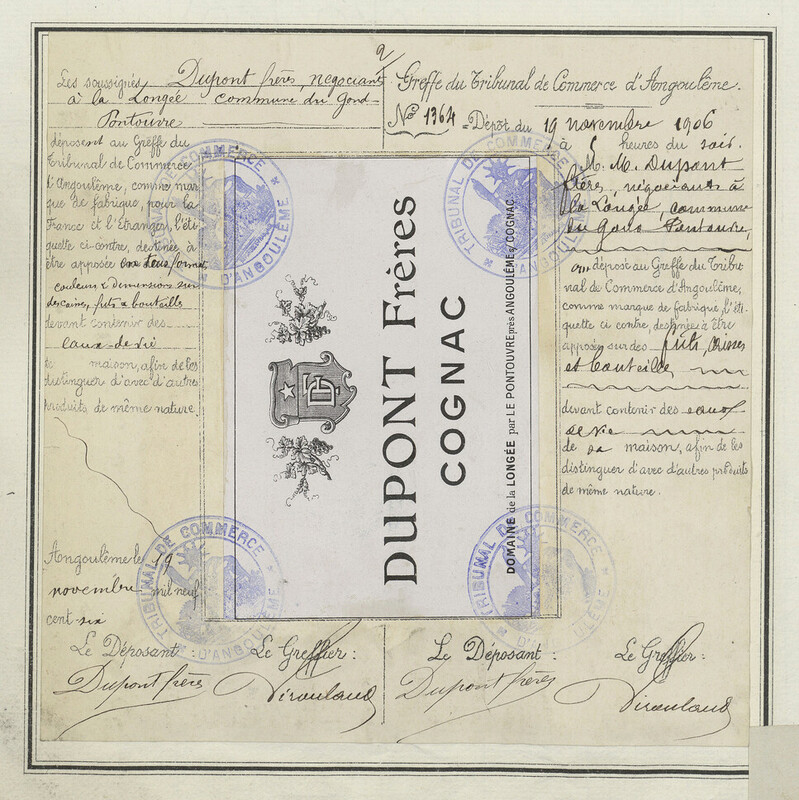 2/
Les soussignés Dupont frères, négociants
à la Longée commune du Gond-
Pontouvre
déposent au Greffe du
Tribunal de Commerce
d'Angoulême, comme mar
que de fabrique, pour la
France et l'Etranger, l'éti
quette ci-contre, destinée à
être apposée en tous format,
couleurs & dimensions sur
des caisses, futs & bouteilles
devant contenir des
eaux-de-vie
maison, afin de les
distinguer d'avec d'autres
produits de même nature.
Angoulême le 19
novembre mil neuf
cent six
Le Déposant : Le Greffier :
Dupont frères
Greffe du Tribunal de Commerce d'Angoulême.
No 1364 Dépôt du 19 novembre 1906
à 5 heures du soir.
M. M. Dupont
frères, négociants à
la Longée, commune
du Gond Pontouvre,
ont déposé au Greffe du Tribu
nal de Commerce d'Angoulême,
comme marque de fabrique, l'éti
quette ci contre, destinée à être
apposée sur des futs, caisses
et bouteilles
devant contenir des eaux
de vie
de sa maison, afin de les
distinguer d'avec d'autres produits
de même nature.
Le Déposant : Le Greffier :
Dupont frères
DF
DUPONT Frères
COGNAC
DOMAINE de la LONGÉE par LE PONTOUVRE près ANGOULÊME & COGNAC.
TRIBUNAL DE COMMERCE
D'ANGOULÊME
TRIBUNAL DE COMMERCE
D'ANGOULÊME
TRIBUNAL DE COMMERCE
D'ANGOULÊME
TRIBUNAL DE COMMERCE
D'ANGOULÊME